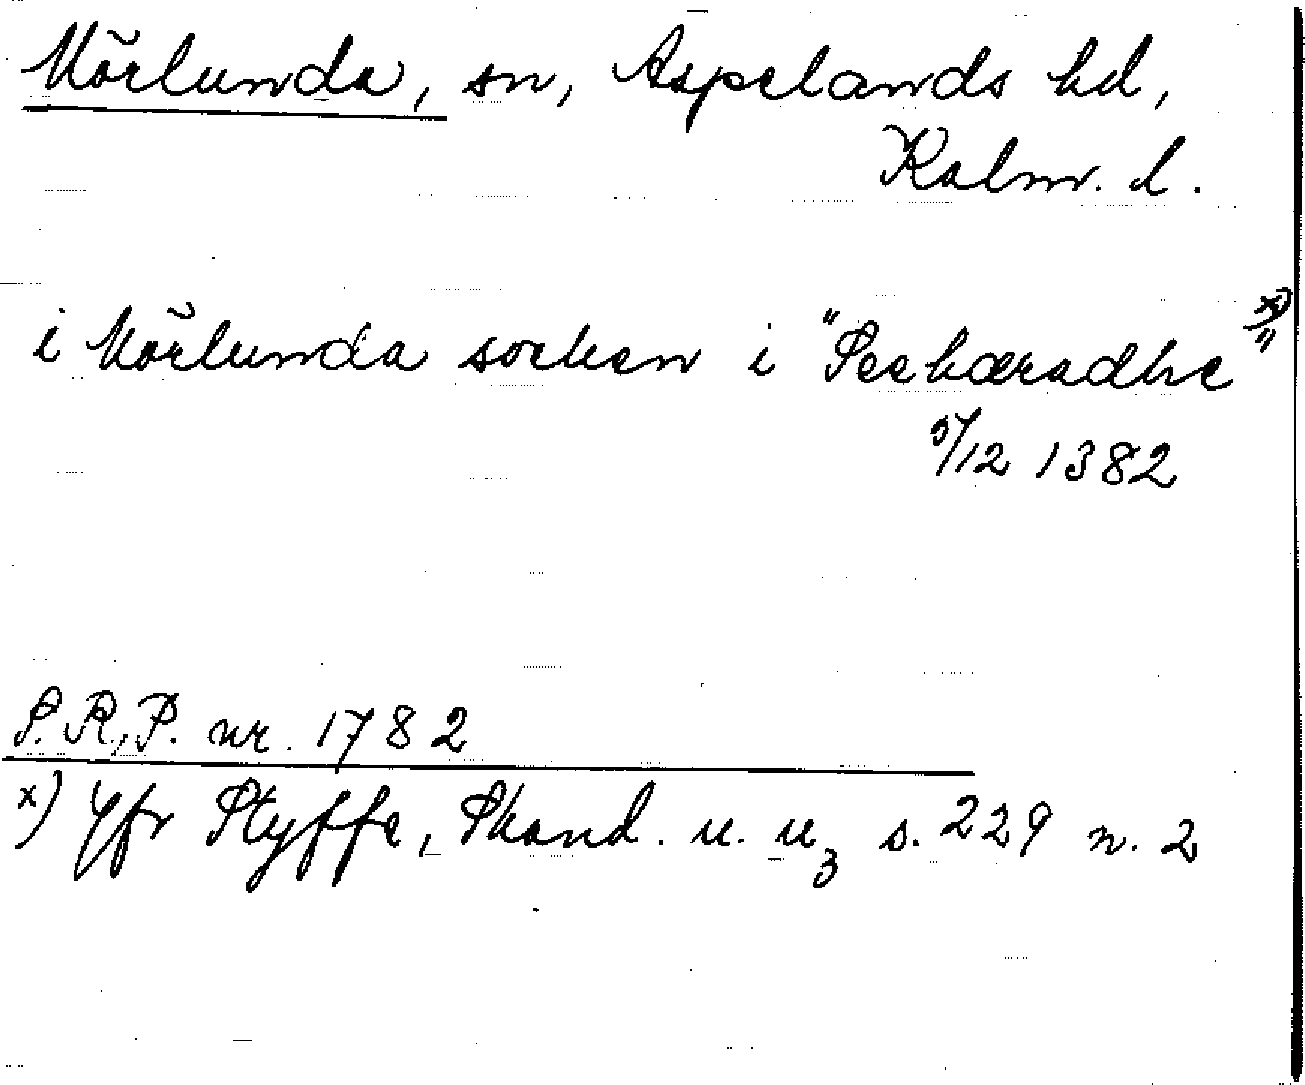 Mörlunda, sn, Aspelands hd,
Kalm. l.
i Mörlunda socken i "Seehæradhe" x)
5/12 1382
S.R.P. nr. 1782
x) Jfr Styffe, Skand. u. u3 s. 229 n. 2